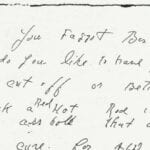 You Faggot Bas
do you like to have
cut off or bet
k a Red Hot Rod i
ass hole that a
cure. for all